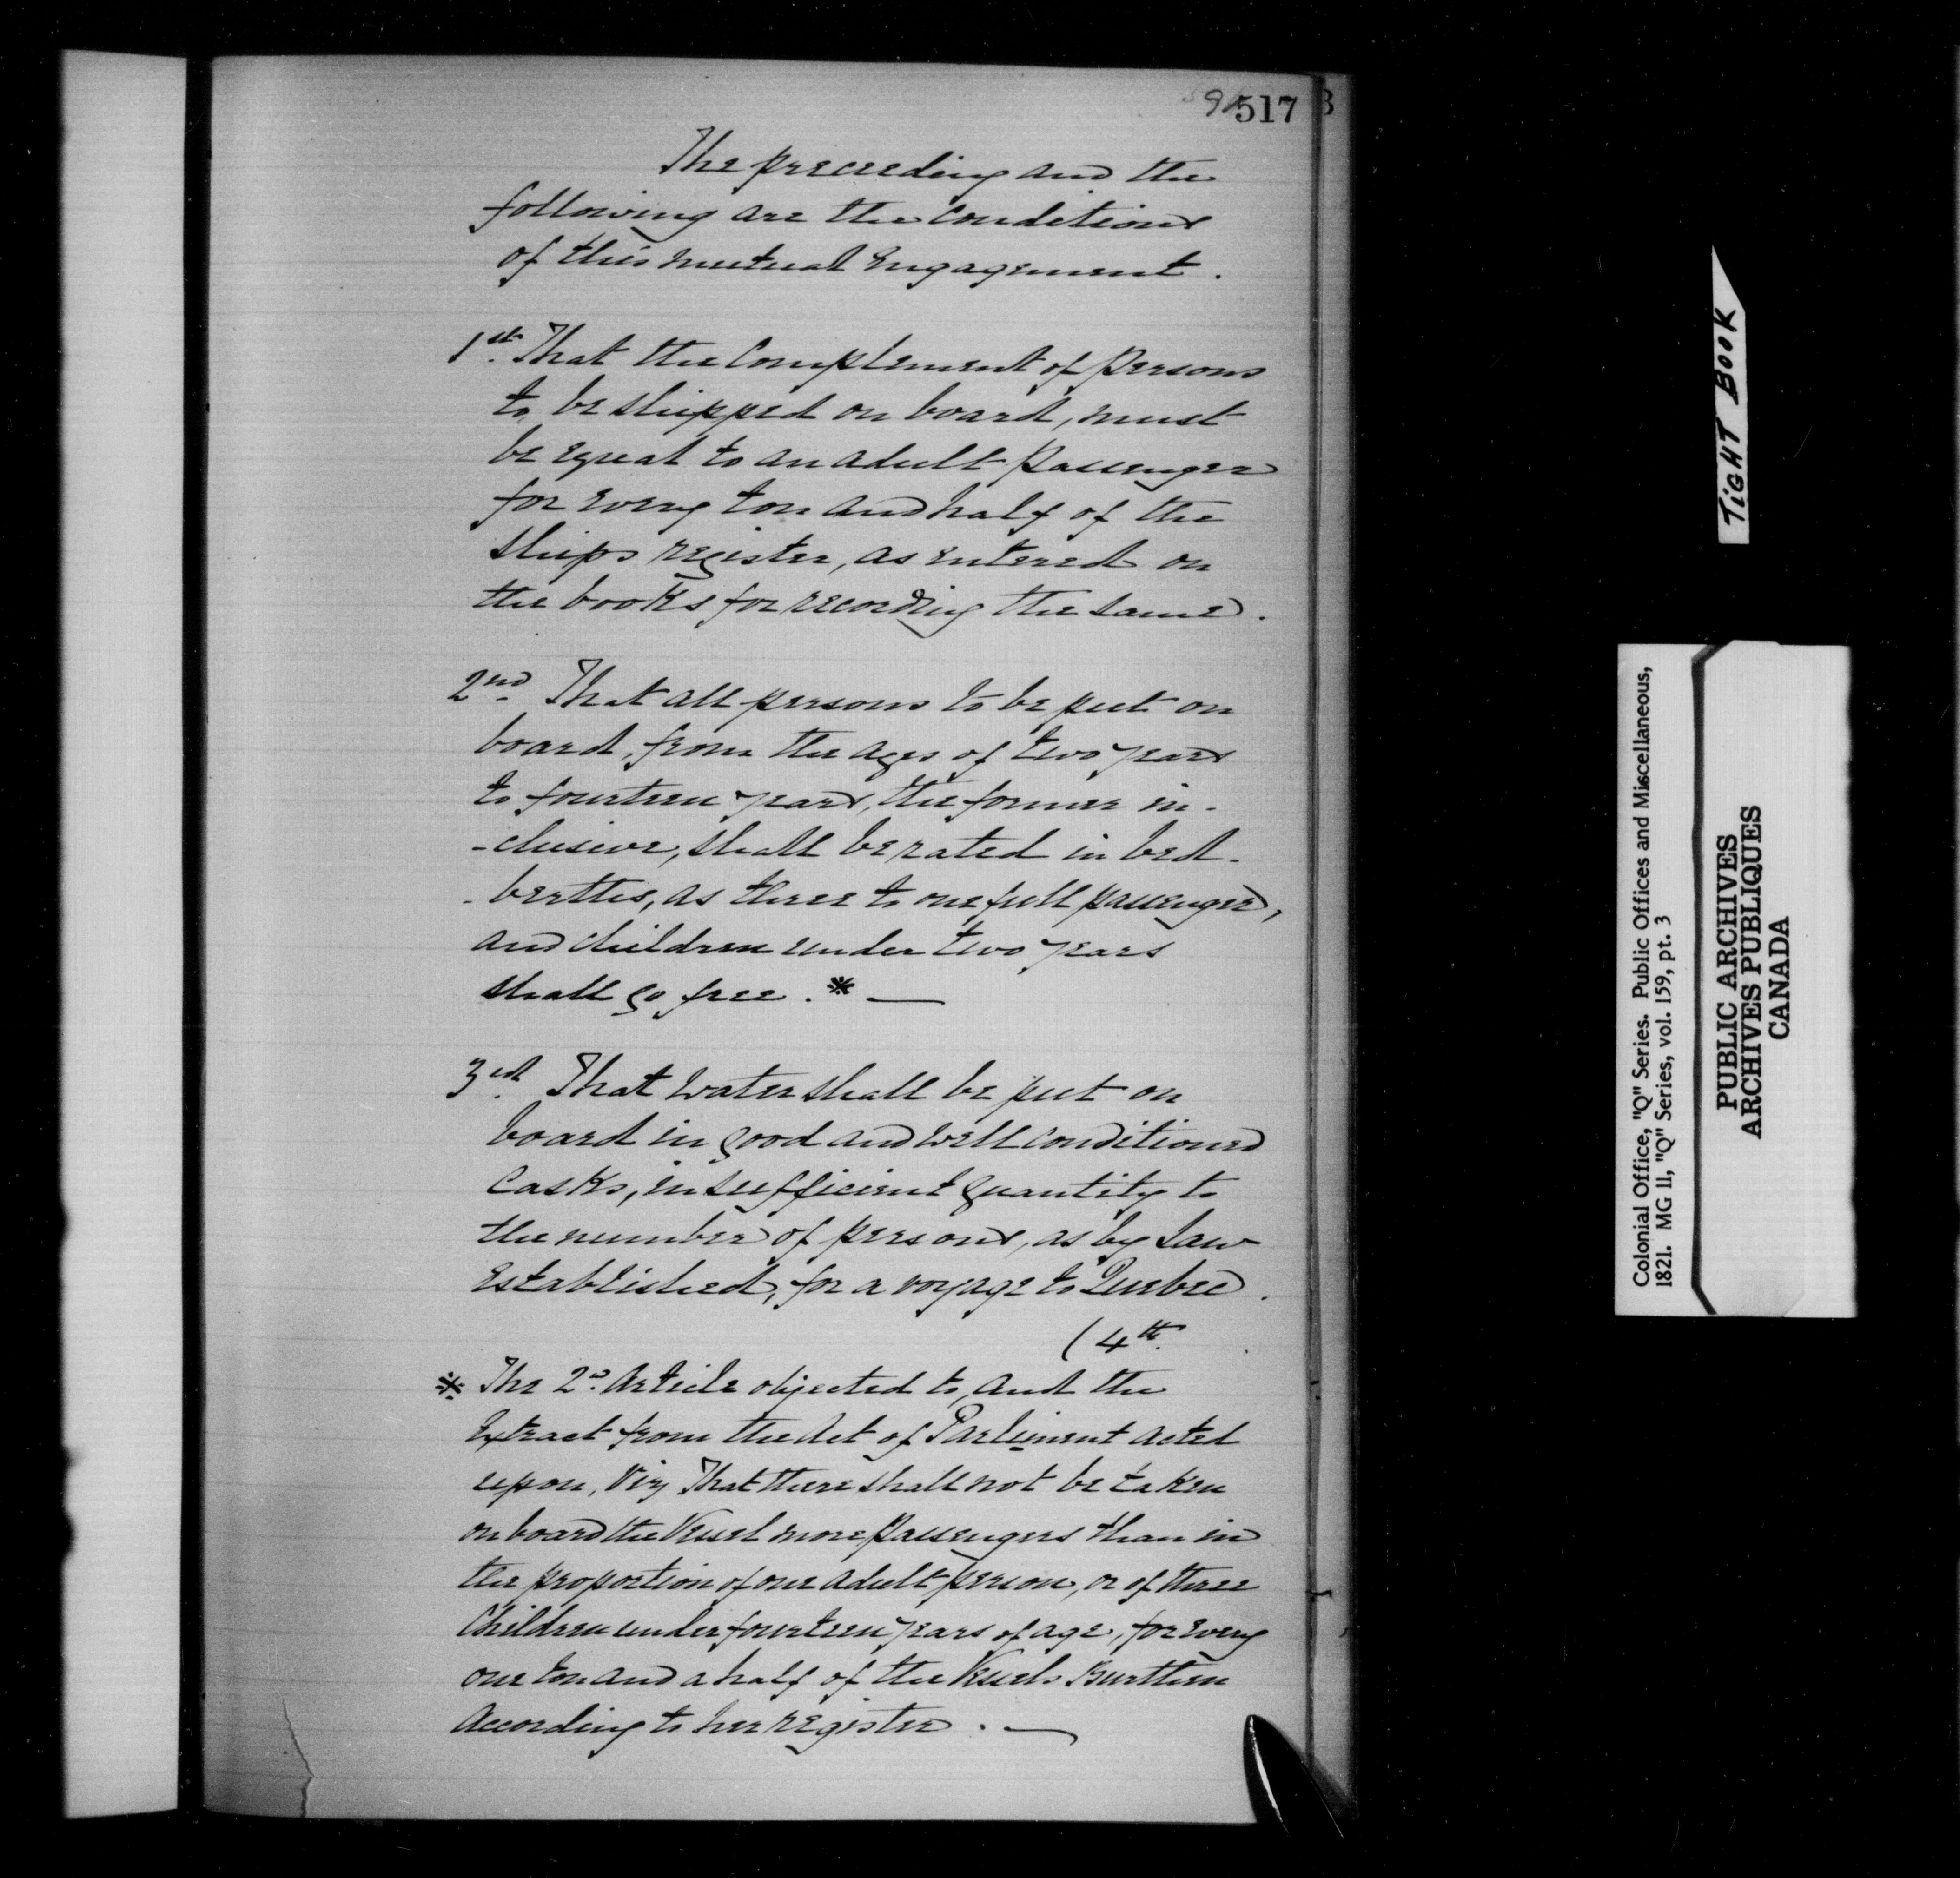 517
The preceeding and the
following are the conditions
of this mutual Engagement.
1st. That the Complement of persons
to be shipped on board, must
be equal to an adult passenger
for every ton and half of the
Ships register, as entered on
the books for recording the same.
2nd. That all persons to be put on
board, from the ages of two years
to fourteen years, the former in-
-clusive, shall be rated in bed-
-berths, as three to one full passenger,
and children under two years
shall go free. * —
3rd. That water shall be put on
board in good and well conditioned
Casks, in sufficient quantity to
the number of persons, as by Law
Established, for a voyage to Quebec.
(4th.
* The 2d. Article objected to, and the
Extract from the Act of Parliment acted
upon, Viz That there shall not be taken
on board the Vessel more passengers than in
the proportion of one adult person, or of three
Children under fourteen years of age, for every
one ton and a half of the Vessels Burthen
According to her register. —
TiGHT BOOK
Colonial Office, "Q" Series. Public Offices and Miscellaneous,
1821. MG 11, "Q" Series, vol. 159, pt. 3
PUBLIC ARCHIVES
ARCHIVES PUBLIQUES
CANADA